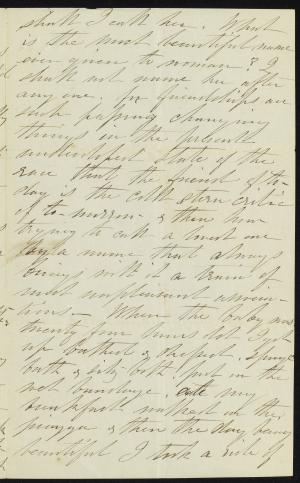 shall I call her. What
is the most beautiful name
ever given to woman? I
shall not name her after
any one. for friendships are
such passing changing
things in the present
undeveloped state of the
race that the friend of to-
day is the cold stern critic
of to-morrow & then how
trying to call a loved one
by a name that always
brings with it a train of
most unpleasant associa-
tions. When the baby was
twenty four hours old I got
up bathed & dressed, sponge
bath & sitz bath, put on the
wet bandage, ate my
breakfast walked on the
piazza & then the day being
beautiful I took a ride of